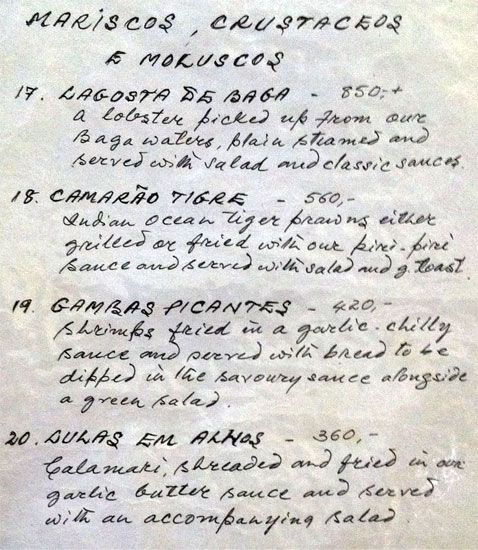 MARISCOS, CRUSTACEOS
E MOLUSCOS
17. LAGOSTA DE BAGA - 850,-+
A lobster picked up from our
Baga waters, plain steamed and
served with salad and classic sauces.
18. CAMARÃO TIGRE - 560,-
Indian Ocean Tiger prawns either
grilled or fried with our piri-piri
sauce and served with salad and g. toast.
19. GAMBAS PICANTES - 420,-
Shrimps fried in a garlic-chilly
sauce and served with bread to be
dipped in the savoury sauce alongside
a green salad.
20. LULAS EM ALHOS - 360,-
Calamari, shreaded and fried in our
garlic butter sauce and served
with an accompanying salad.